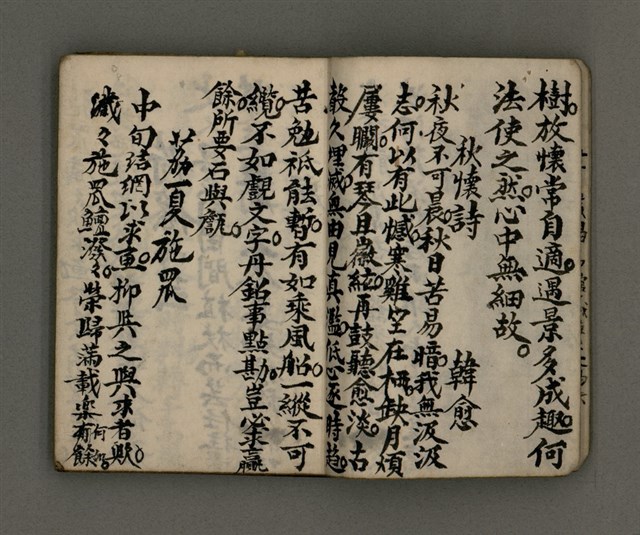 樹。放懷常自適。遇景多成趣。何
法使之然。心中無細故。
秋懷詩　韓愈
秋夜不可晨。秋日苦易暗。我無汲汲
志。何以有此憾。寒雞空在栖。缺月煩
屢瞰。有琴具徽絃。再鼓聽愈淡。古
聲久埋滅。無由見真濫。低心逐時趨。
苦勉祇能暫。有如乘風船。一縱不可
纜。不如覷文字。丹鉛事點勘。豈必求贏
餘。所要石與甔。
孟夏施罛
中旬結網以求 抑與之與求者歟。
濊々施罛鱣潑々。榮歸滿載樂何如。有餘